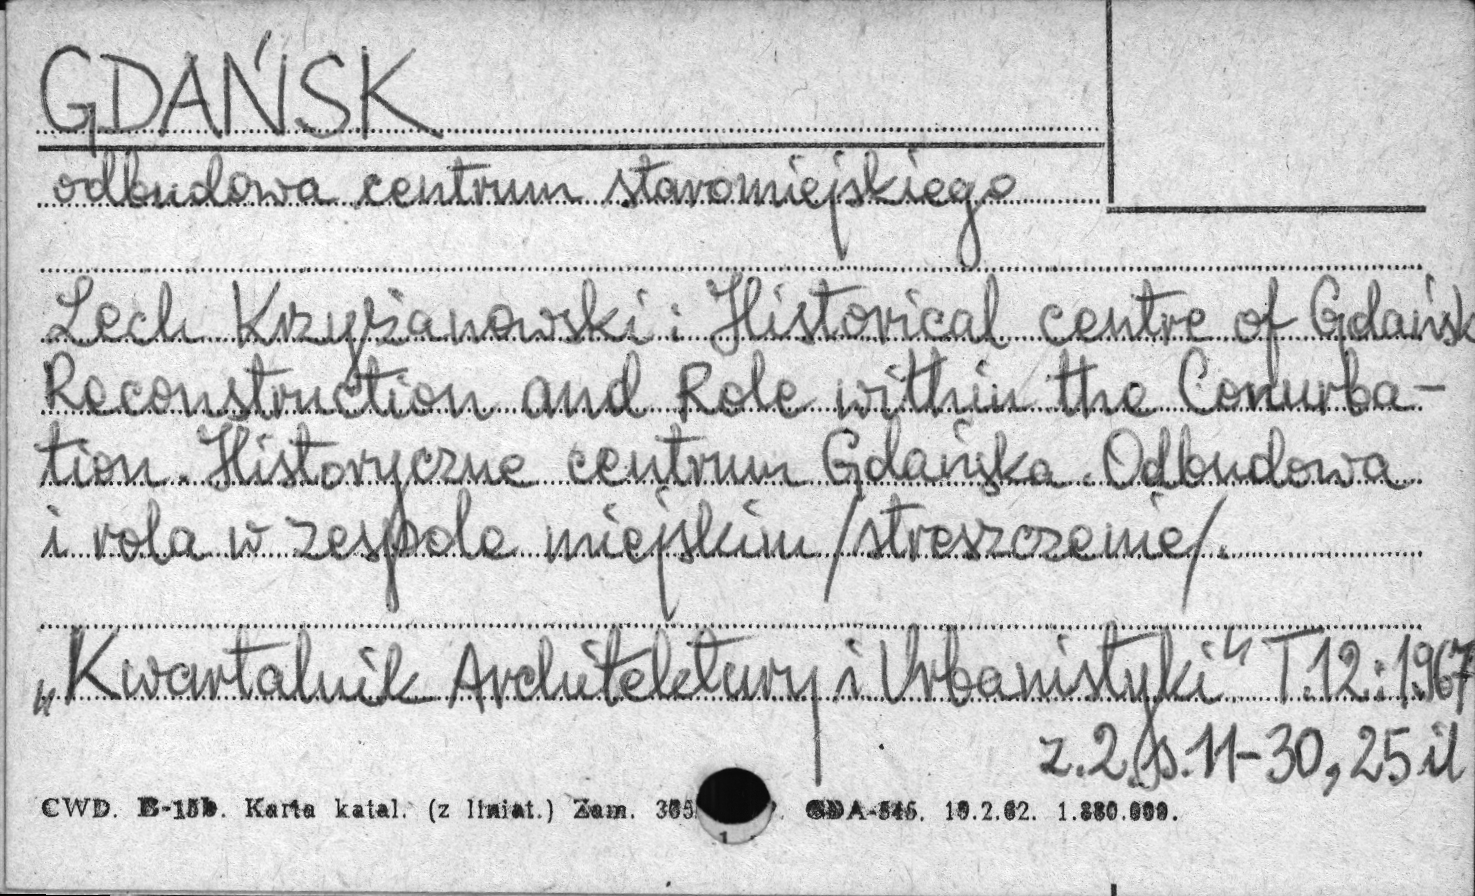 GDAŃSK
odbudowa centrum staromiejskiego
Lech Krzyżanowski: Historical centre of Gdańsk
Reconstruction and Role within the Conurba-
tion. Historyczne centrum Gdańska. Odbudowa
i rola w zespole miejskim /streszczenie/.
„Kwartalnik Architektury i Urbanistyki" T.12:1967
z.2, s.11-30, 25 il
CWD. Karta katal. (z liniat.) Zam. 10.2.62.